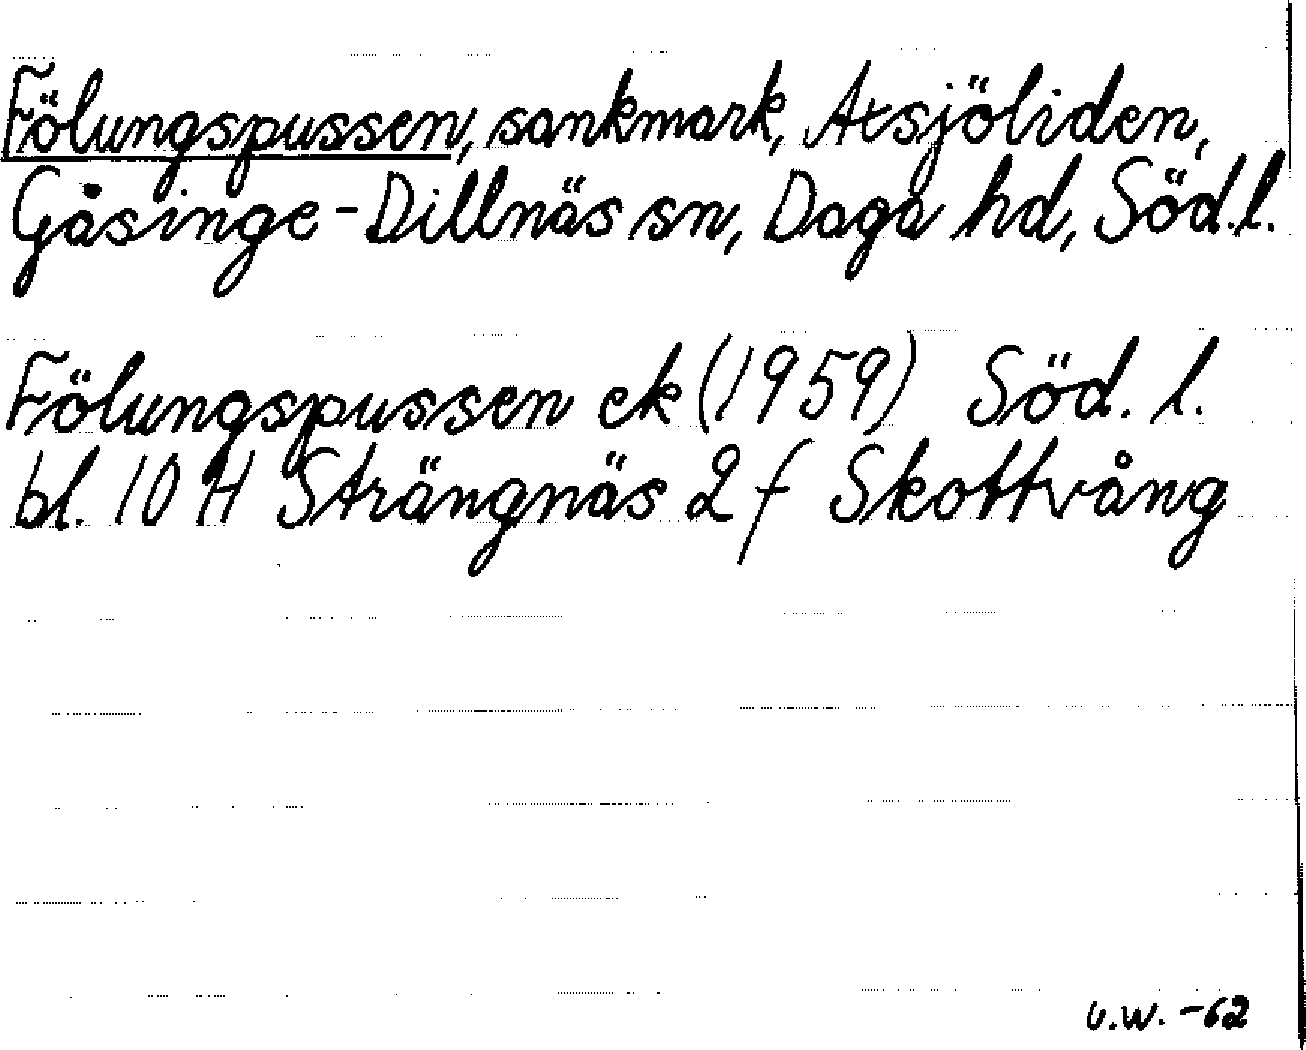 Fölungspussen, sankmark, Axsjöliden,
Gåsinge-Dillnäs sn, Daga hd, Söd.l.
Fölungspussen ek (1959) Söd. l.
bl. 10 H Strängnäs 2 f Skottvång
U.W. -62